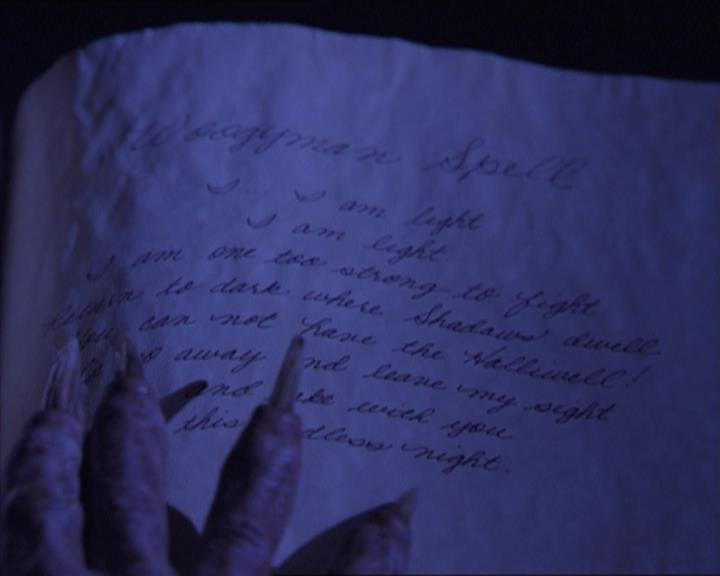 Woogyman Spell
I... I am light
I am light
I am one too strong to fight
Return to dark where Shadows dwell
You can not have the Halliwell!
Go away nd leave my sight
and ke with you
this dless night.